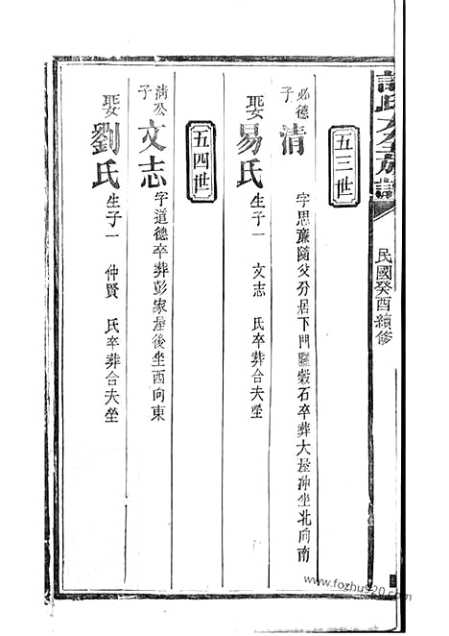 民國癸酉續修
五三世
必德子
清
字思廉隨父分居下門驪穀石卒葬大屋沖坐北向南
娶易氏
生子一 文志 氏卒葬合夫塋
五四世
清公子
文志
字道德卒葬彭家屋後坐酉向東
娶劉氏
生子一 仲賢 氏卒葬合夫塋
www.fozhu920.com